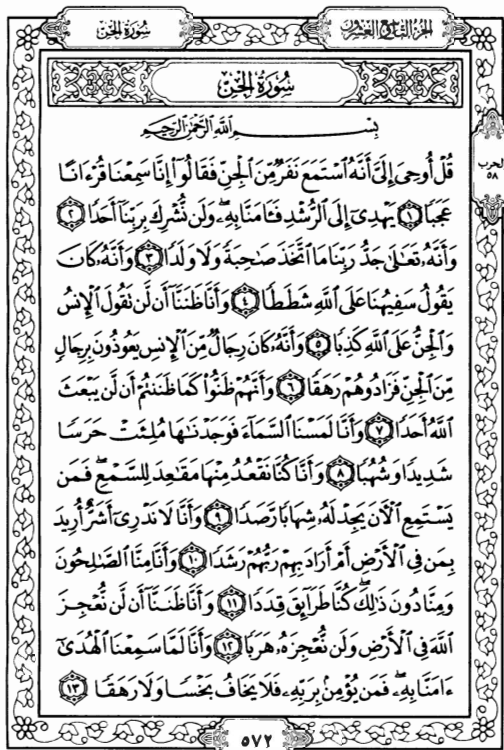 سُورَةُ الجِنّ
الجزء التاسع والعشرون
سُورَةُ الجِنّ
بِسْمِ اللَّهِ الرَّحْمَٰنِ الرَّحِيمِ
قُلْ أُوحِىَ إِلَىَّ أَنَّهُ ٱسْتَمَعَ نَفَرٌ مِّنَ ٱلْجِنِّ فَقَالُوٓا۟ إِنَّا سَمِعْنَا قُرْءَانًا
عَجَبًا ١ يَهْدِىٓ إِلَى ٱلرُّشْدِ فَـَٔامَنَّا بِهِۦ ۖ وَلَن نُّشْرِكَ بِرَبِّنَآ أَحَدًا ٢
وَأَنَّهُۥ تَعَٰلَىٰ جَدُّ رَبِّنَا مَا ٱتَّخَذَ صَٰحِبَةً وَلَا وَلَدًا ٣ وَأَنَّهُۥ كَانَ
يَقُولُ سَفِيهُنَا عَلَى ٱللَّهِ شَطَطًا ٤ وَأَنَّا ظَنَنَّآ أَن لَّن تَقُولَ ٱلْإِنسُ
وَٱلْجِنُّ عَلَى ٱللَّهِ كَذِبًا ٥ وَأَنَّهُۥ كَانَ رِجَالٌ مِّنَ ٱلْإِنسِ يَعُوذُونَ بِرِجَالٍ
مِّنَ ٱلْجِنِّ فَزَادُوهُمْ رَهَقًا ٦ وَأَنَّهُمْ ظَنُّوا۟ كَمَا ظَنَنتُمْ أَن لَّن يَبْعَثَ
ٱللَّهُ أَحَدًا ٧ وَأَنَّا لَمَسْنَا ٱلسَّمَآءَ فَوَجَدْنَٰهَا مُلِئَتْ حَرَسًا
شَدِيدًا وَشُهُبًا ٨ وَأَنَّا كُنَّا نَقْعُدُ مِنْهَا مَقَٰعِدَ لِلسَّمْعِ ۖ فَمَن
يَسْتَمِعِ ٱلْـَٔانَ يَجِدْ لَهُۥ شِهَابًا رَّصَدًا ٩ وَأَنَّا لَا نَدْرِىٓ أَشَرٌّ أُرِيدَ
بِمَن فِى ٱلْأَرْضِ أَمْ أَرَادَ بِهِمْ رَبُّهُمْ رَشَدًا ١٠ وَأَنَّا مِنَّا ٱلصَّٰلِحُونَ
وَمِنَّا دُونَ ذَٰلِكَ ۖ كُنَّا طَرَآئِقَ قِدَدًا ١١ وَأَنَّا ظَنَنَّآ أَن لَّن نُّعْجِزَ
ٱللَّهَ فِى ٱلْأَرْضِ وَلَن نُّعْجِزَهُۥ هَرَبًا ١٢ وَأَنَّا لَمَّا سَمِعْنَا ٱلْهُدَىٰٓ
ءَامَنَّا بِهِۦ ۖ فَمَن يُؤْمِنۢ بِرَبِّهِۦ فَلَا يَخَافُ بَخْسًا وَلَا رَهَقًا ١٣
الحزب
٥٨
٥٧٢